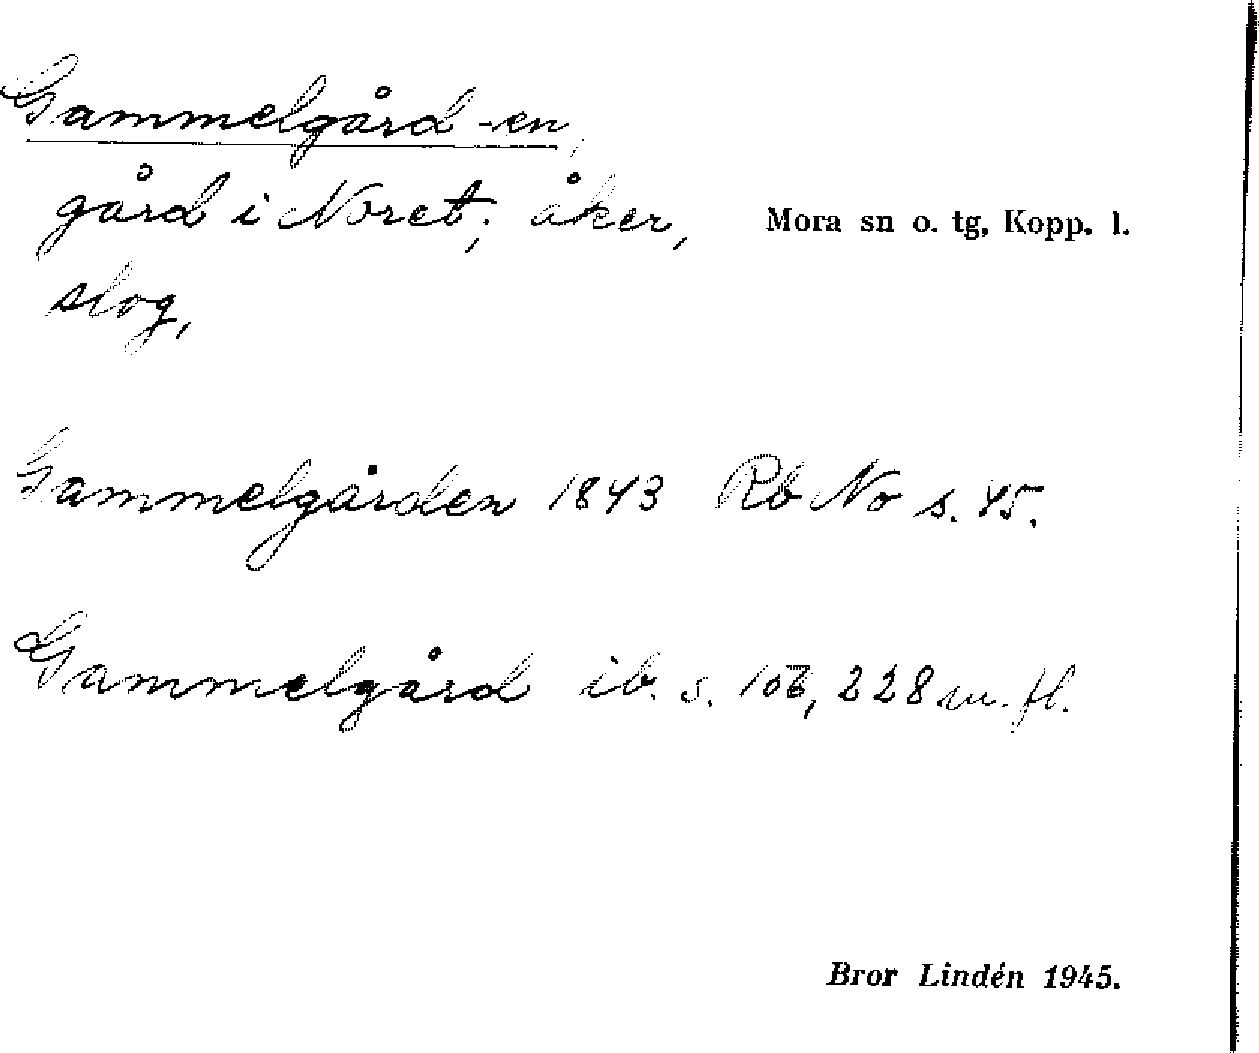 Gammelgård -en,
gård i Noret; åker, Mora sn o. tg, Kopp. l.
slog,
Gammelgården 1843 Rb No s. 45.
Gammelgård ib. s. 228 m. fl.
Bror Lindén 1945.